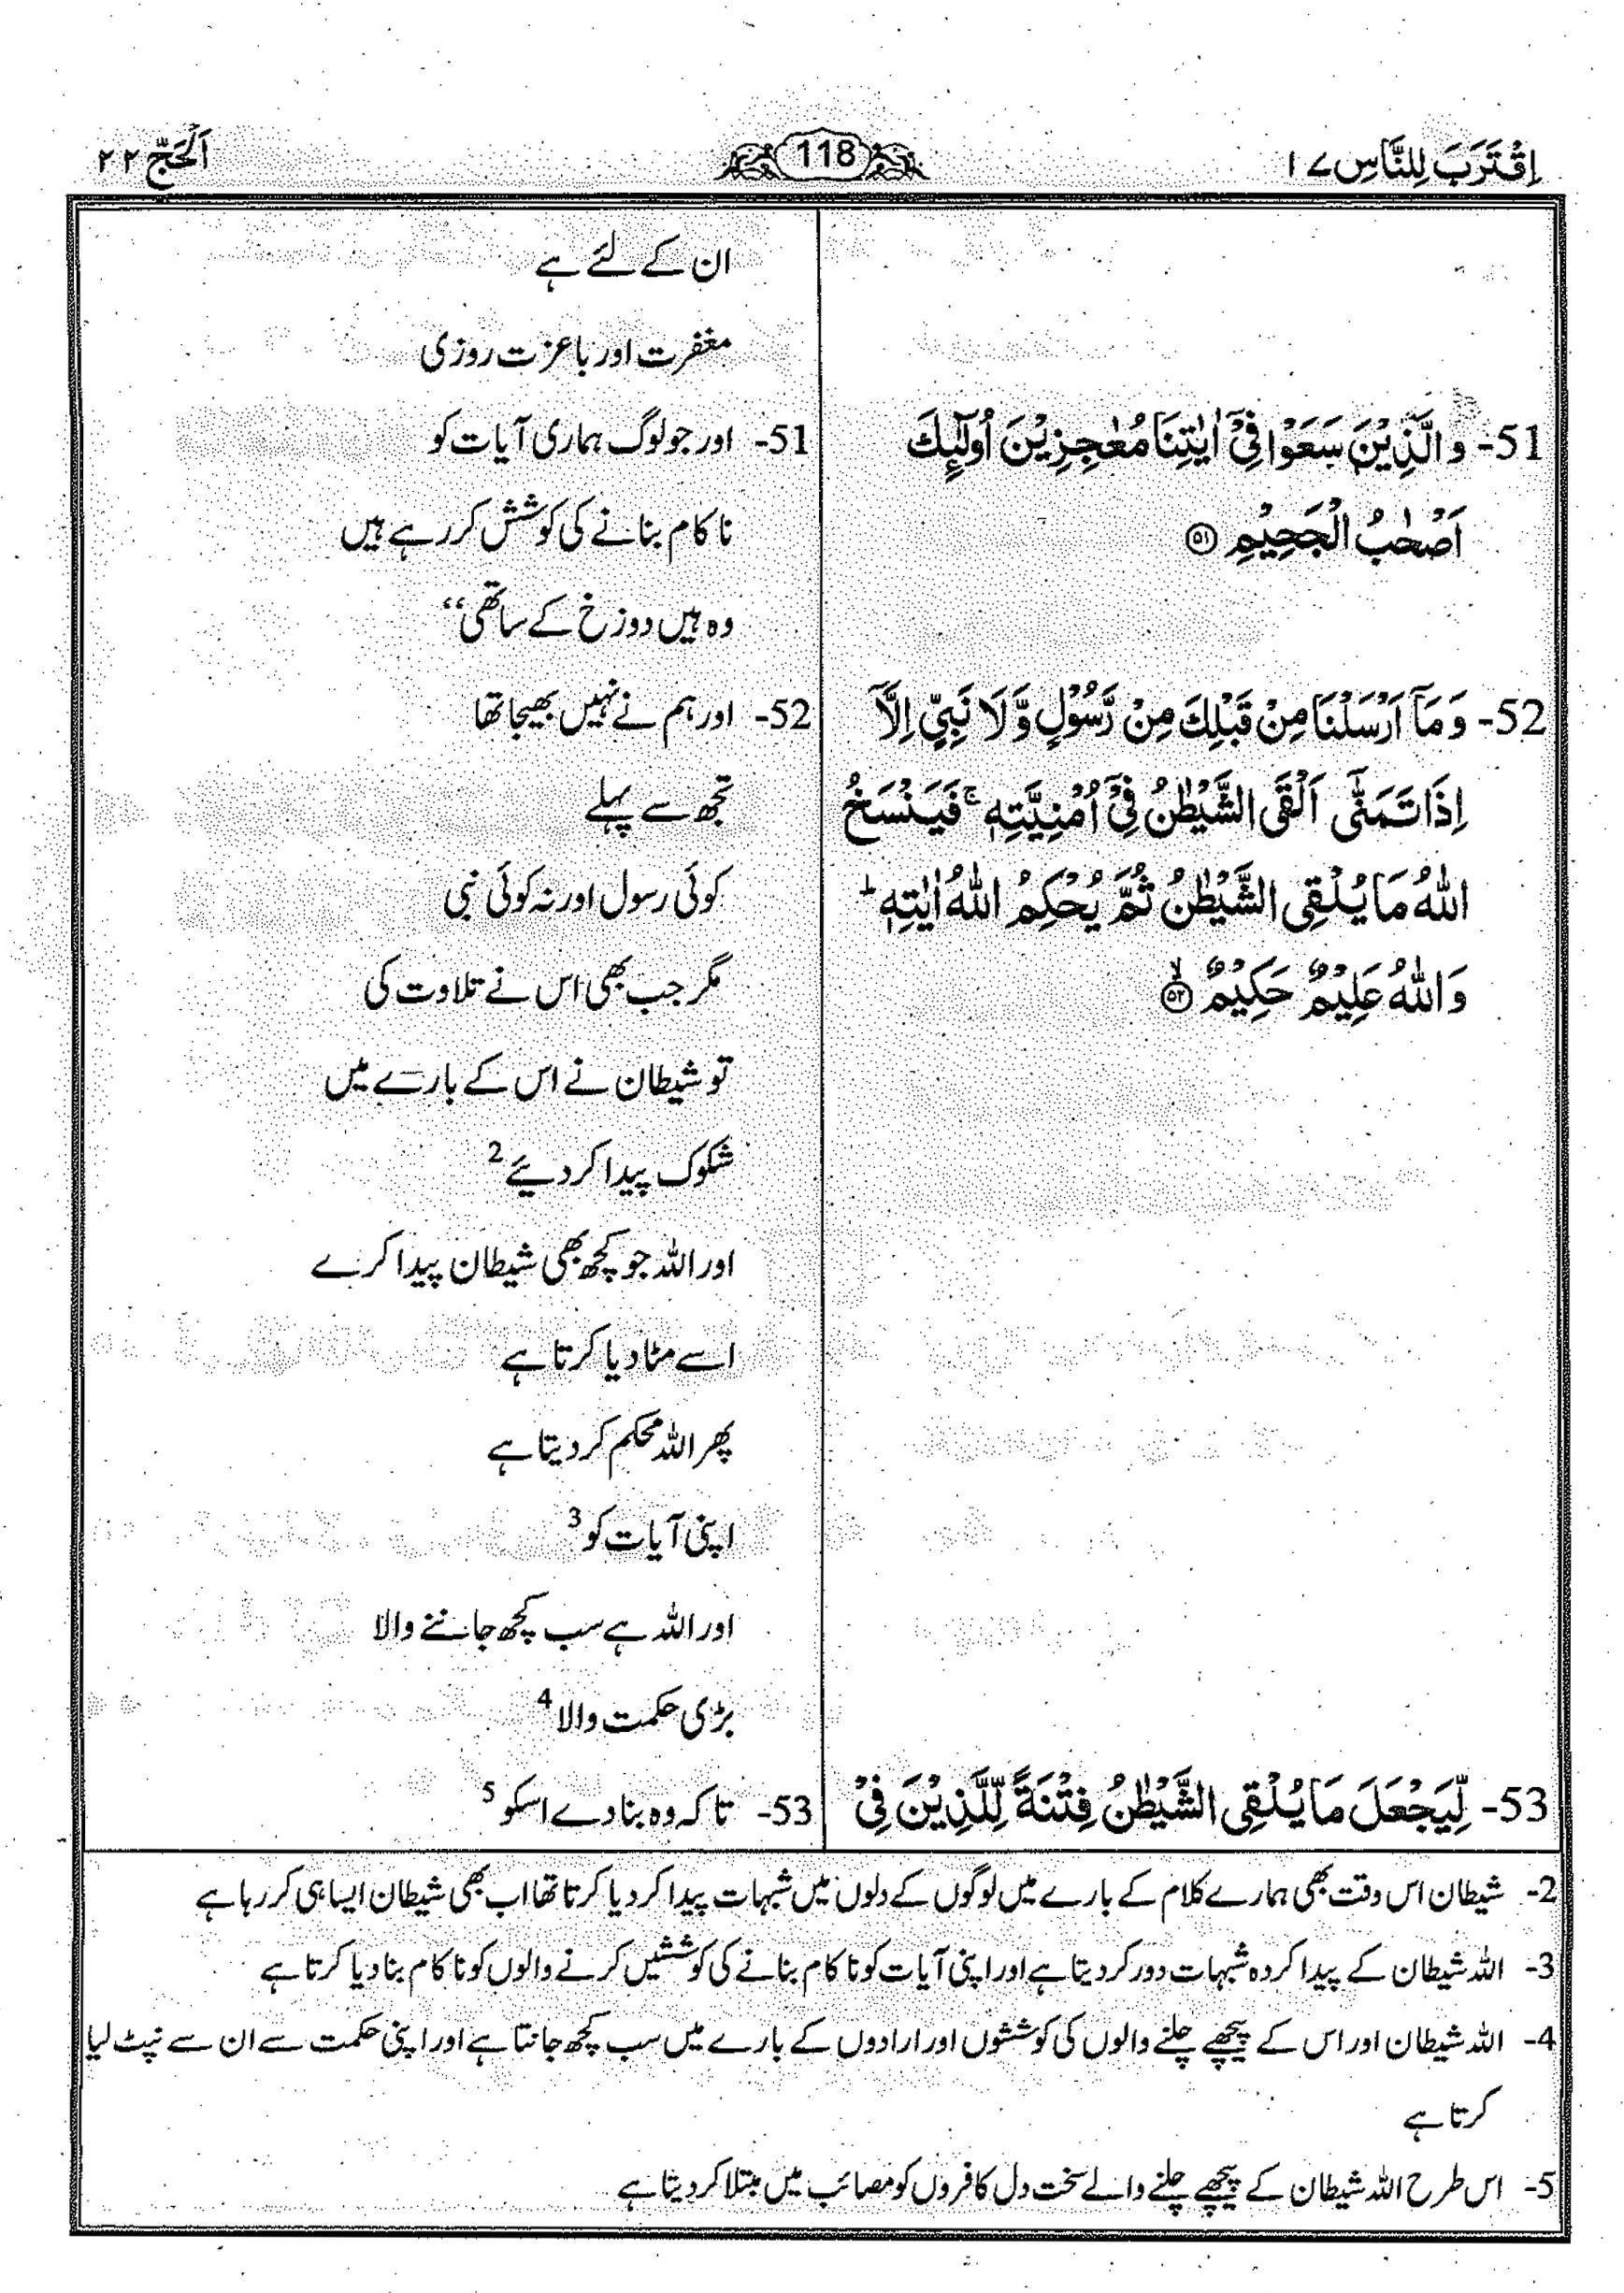 اِقْتَرَبَ لِلنَّاسِ ۱۷
118
اَلْحَجّ ۲۲
ان کے لئے ہے
مغفرت اور باعزت روزی
51- وَالَّذِيْنَ سَعَوْا فِيْٓ اٰيٰتِنَا مُعٰجِزِيْنَ اُولٰٓئِكَ
اَصْحٰبُ الْجَحِيْمِ ۵۱
51- اور جو لوگ ہماری آیات کو
ناکام بنانے کی کوشش کر رہے ہیں
وہ ہیں دوزخ کے ساتھی‘‘
52- وَمَآ اَرْسَلْنَا مِنْ قَبْلِكَ مِنْ رَّسُوْلٍ وَّلَا نَبِيٍّ اِلَّآ
اِذَا تَمَنّٰٓى اَلْقَى الشَّيْطٰنُ فِيْٓ اُمْنِيَّتِهٖ ۚ فَيَنْسَخُ
اللّٰهُ مَا يُلْقِى الشَّيْطٰنُ ثُمَّ يُحْكِمُ اللّٰهُ اٰيٰتِهٖ ؕ
وَاللّٰهُ عَلِيْمٌ حَكِيْمٌ ۙ ۵۲
52- اور ہم نے نہیں بھیجا تھا
تجھ سے پہلے
کوئی رسول اور نہ کوئی نبی
مگر جب بھی اس نے تلاوت کی
تو شیطان نے اس کے بارے میں
شکوک پیدا کر دیئے 2
اور اللہ جو کچھ بھی شیطان پیدا کرے
اسے مٹا دیا کرتا ہے
پھر اللہ محکم کر دیتا ہے
اپنی آیات کو 3
اور اللہ ہے سب کچھ جاننے والا
بڑی حکمت والا 4
53- لِّيَجْعَلَ مَا يُلْقِى الشَّيْطٰنُ فِتْنَةً لِّلَّذِيْنَ فِيْ
53- تاکہ وہ بنا دے اسکو 5
2- شیطان اس وقت بھی ہمارے کلام کے بارے میں لوگوں کے دلوں میں شبہات پیدا کر دیا کرتا تھا اب بھی شیطان ایسا ہی کر رہا ہے
3- اللہ شیطان کے پیدا کردہ شبہات دور کر دیتا ہے اور اپنی آیات کو ناکام بنانے کی کوششیں کرنے والوں کو ناکام بنا دیا کرتا ہے
4- اللہ شیطان اور اس کے پیچھے چلنے والوں کی کوششوں اور ارادوں کے بارے میں سب کچھ جانتا ہے اور اپنی حکمت سے ان سے نپٹ لیا
کرتا ہے
5- اس طرح اللہ شیطان کے پیچھے چلنے والے سخت دل کافروں کو مصائب میں مبتلا کر دیتا ہے